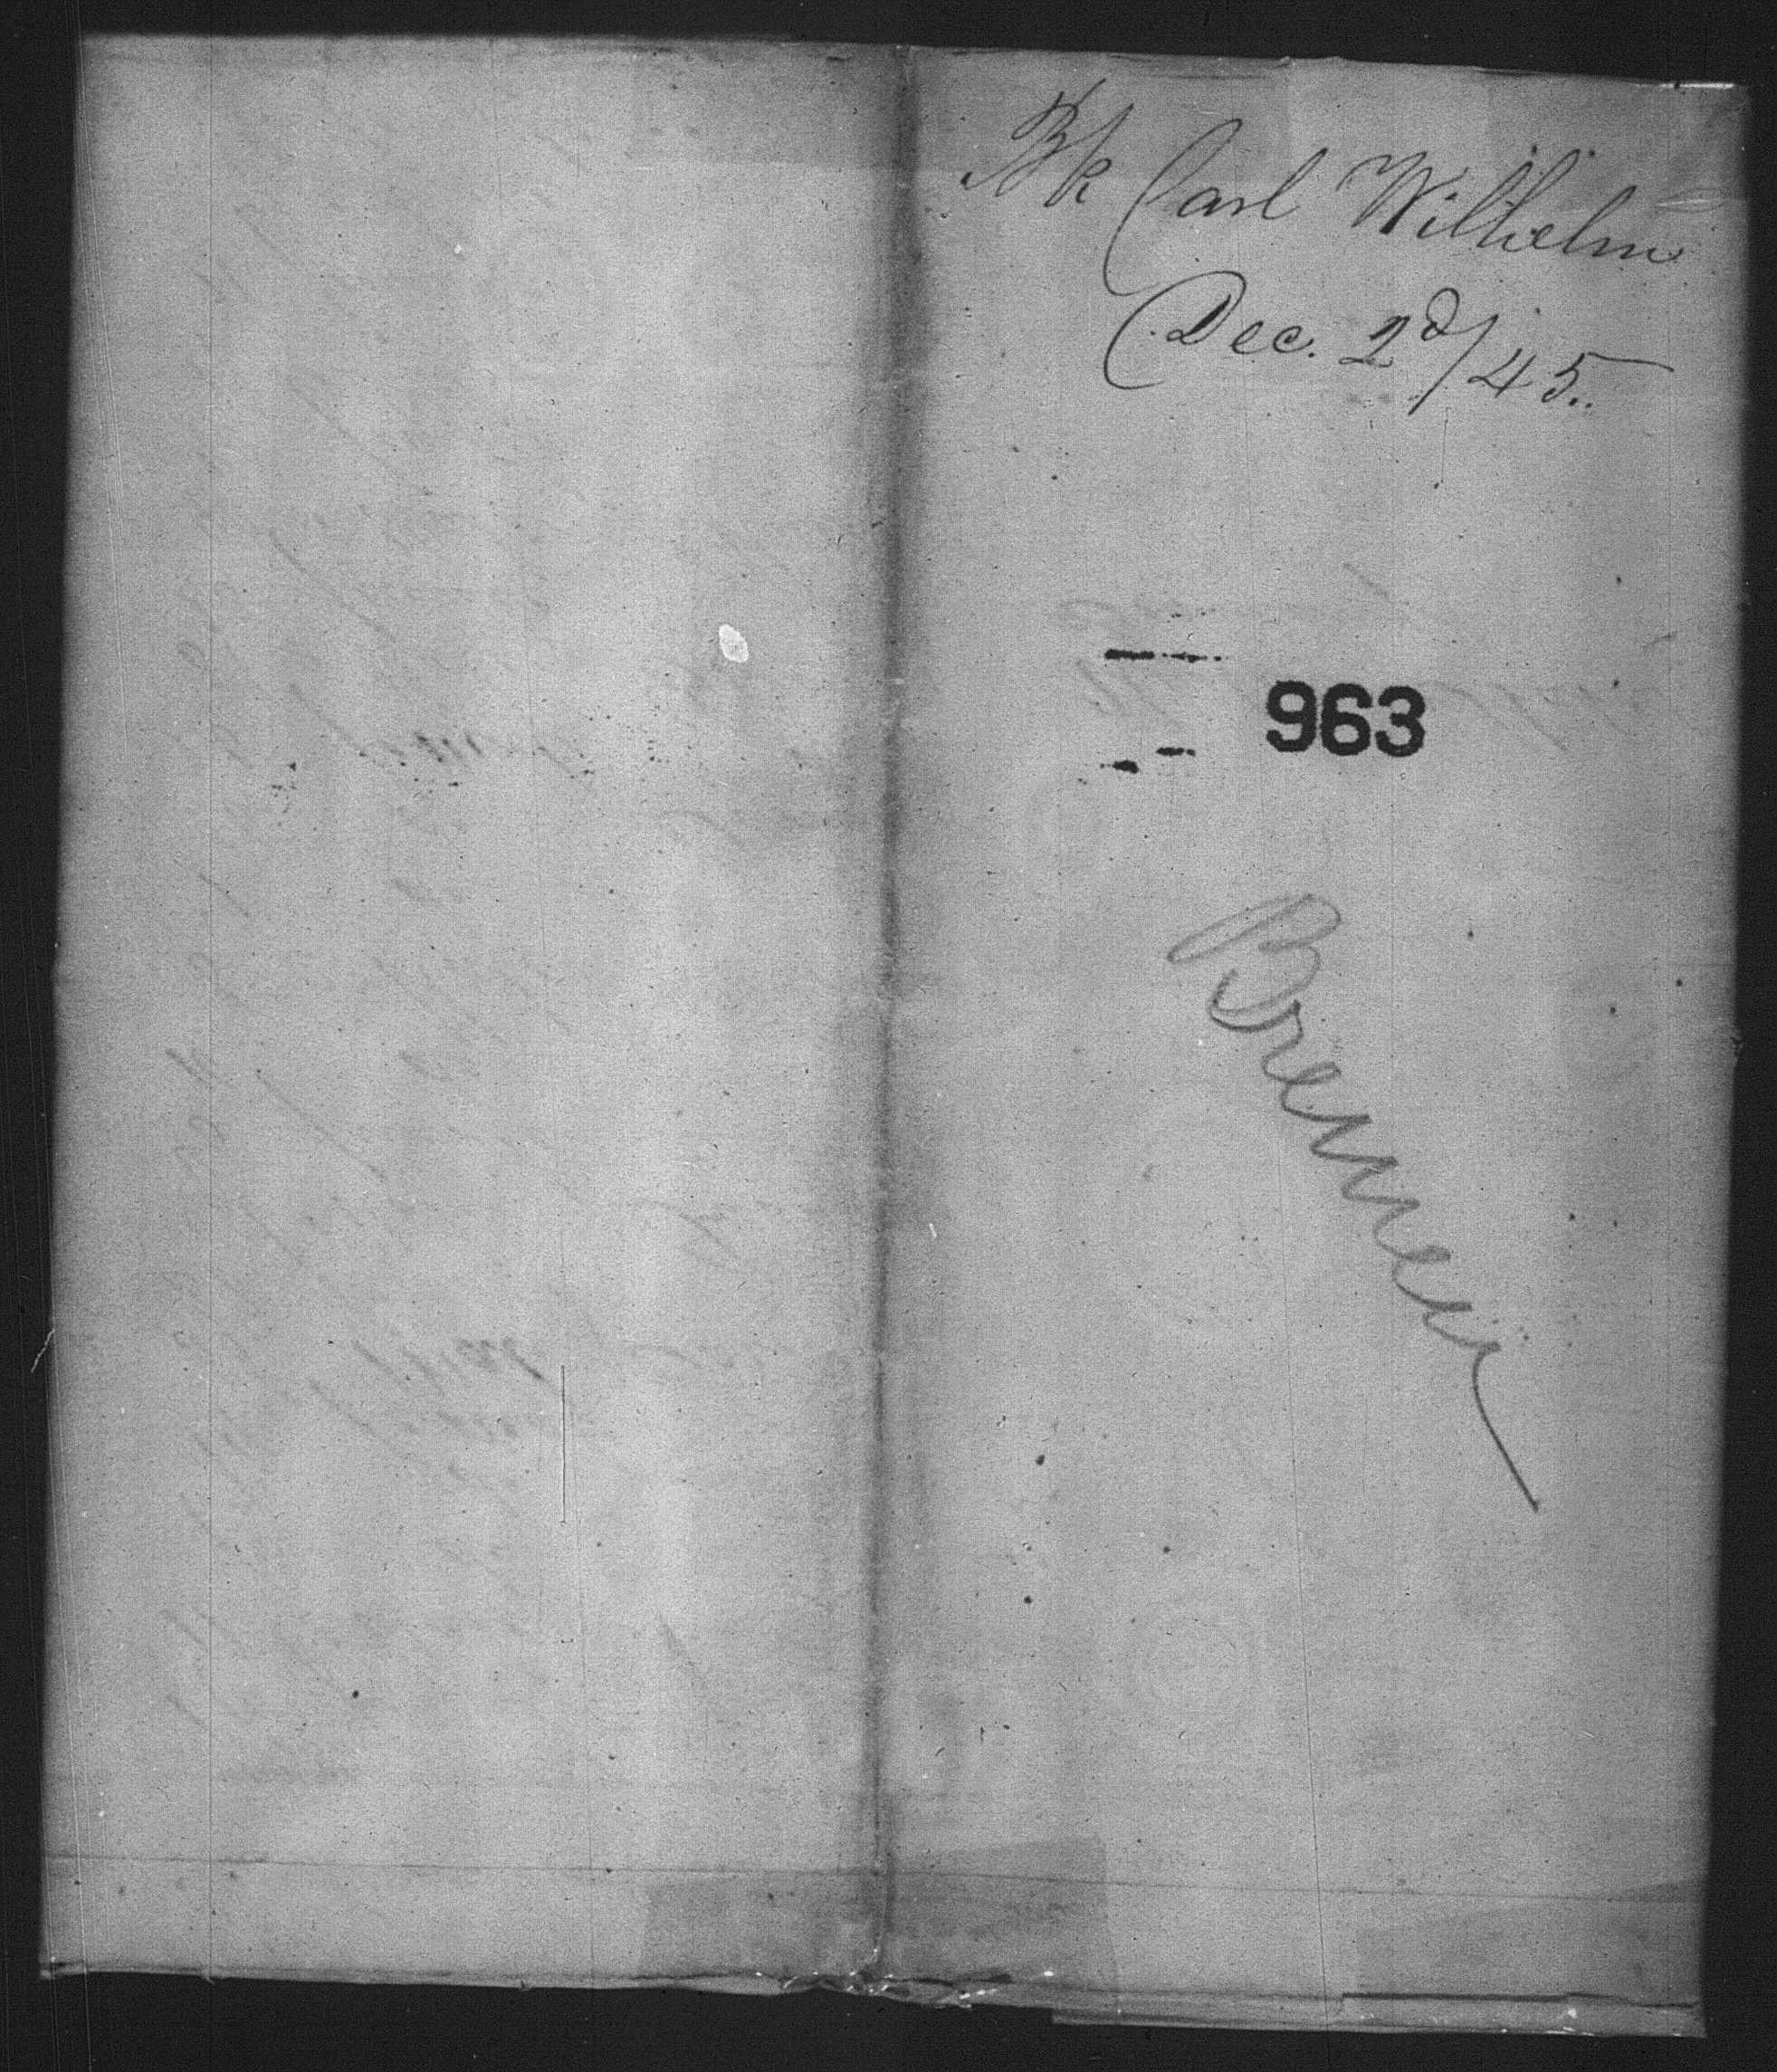 Bk Carl Wilhelm
Dec. 2d/45.
963
Bremen